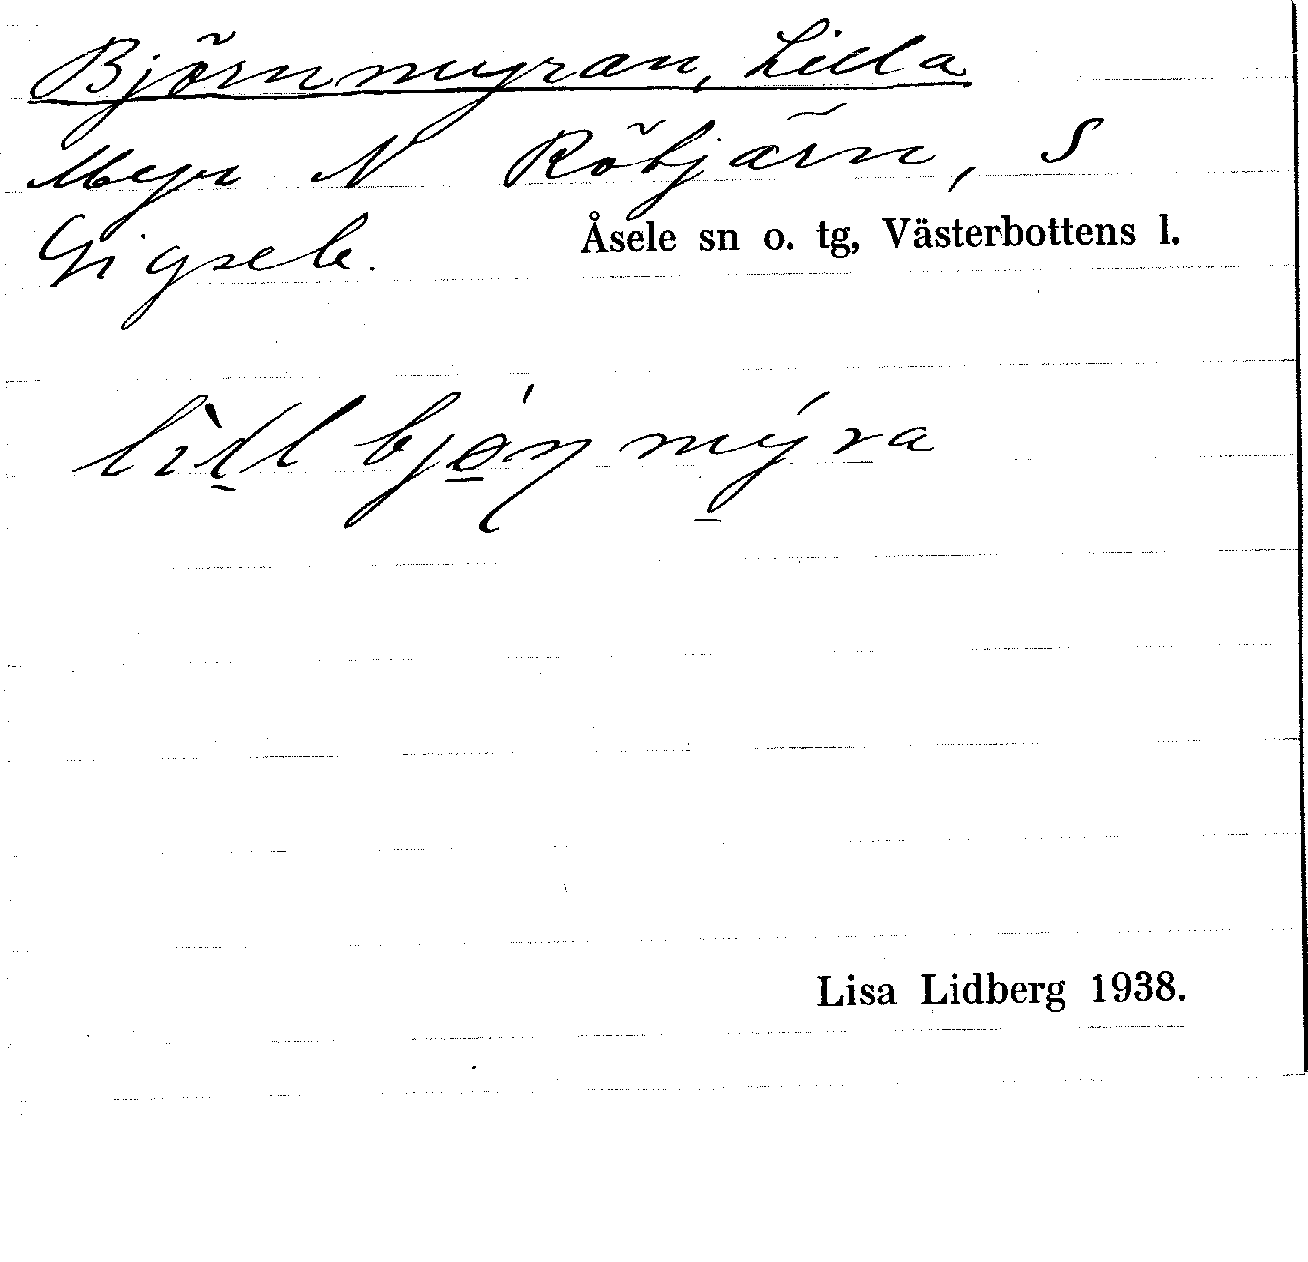 Björnmyran, Lilla
Myr N Rötjärn, S
Gigsele.
Åsele sn o. tg, Västerbottens l.
lìdl bjǿn mýra
Lisa Lidberg 1938.